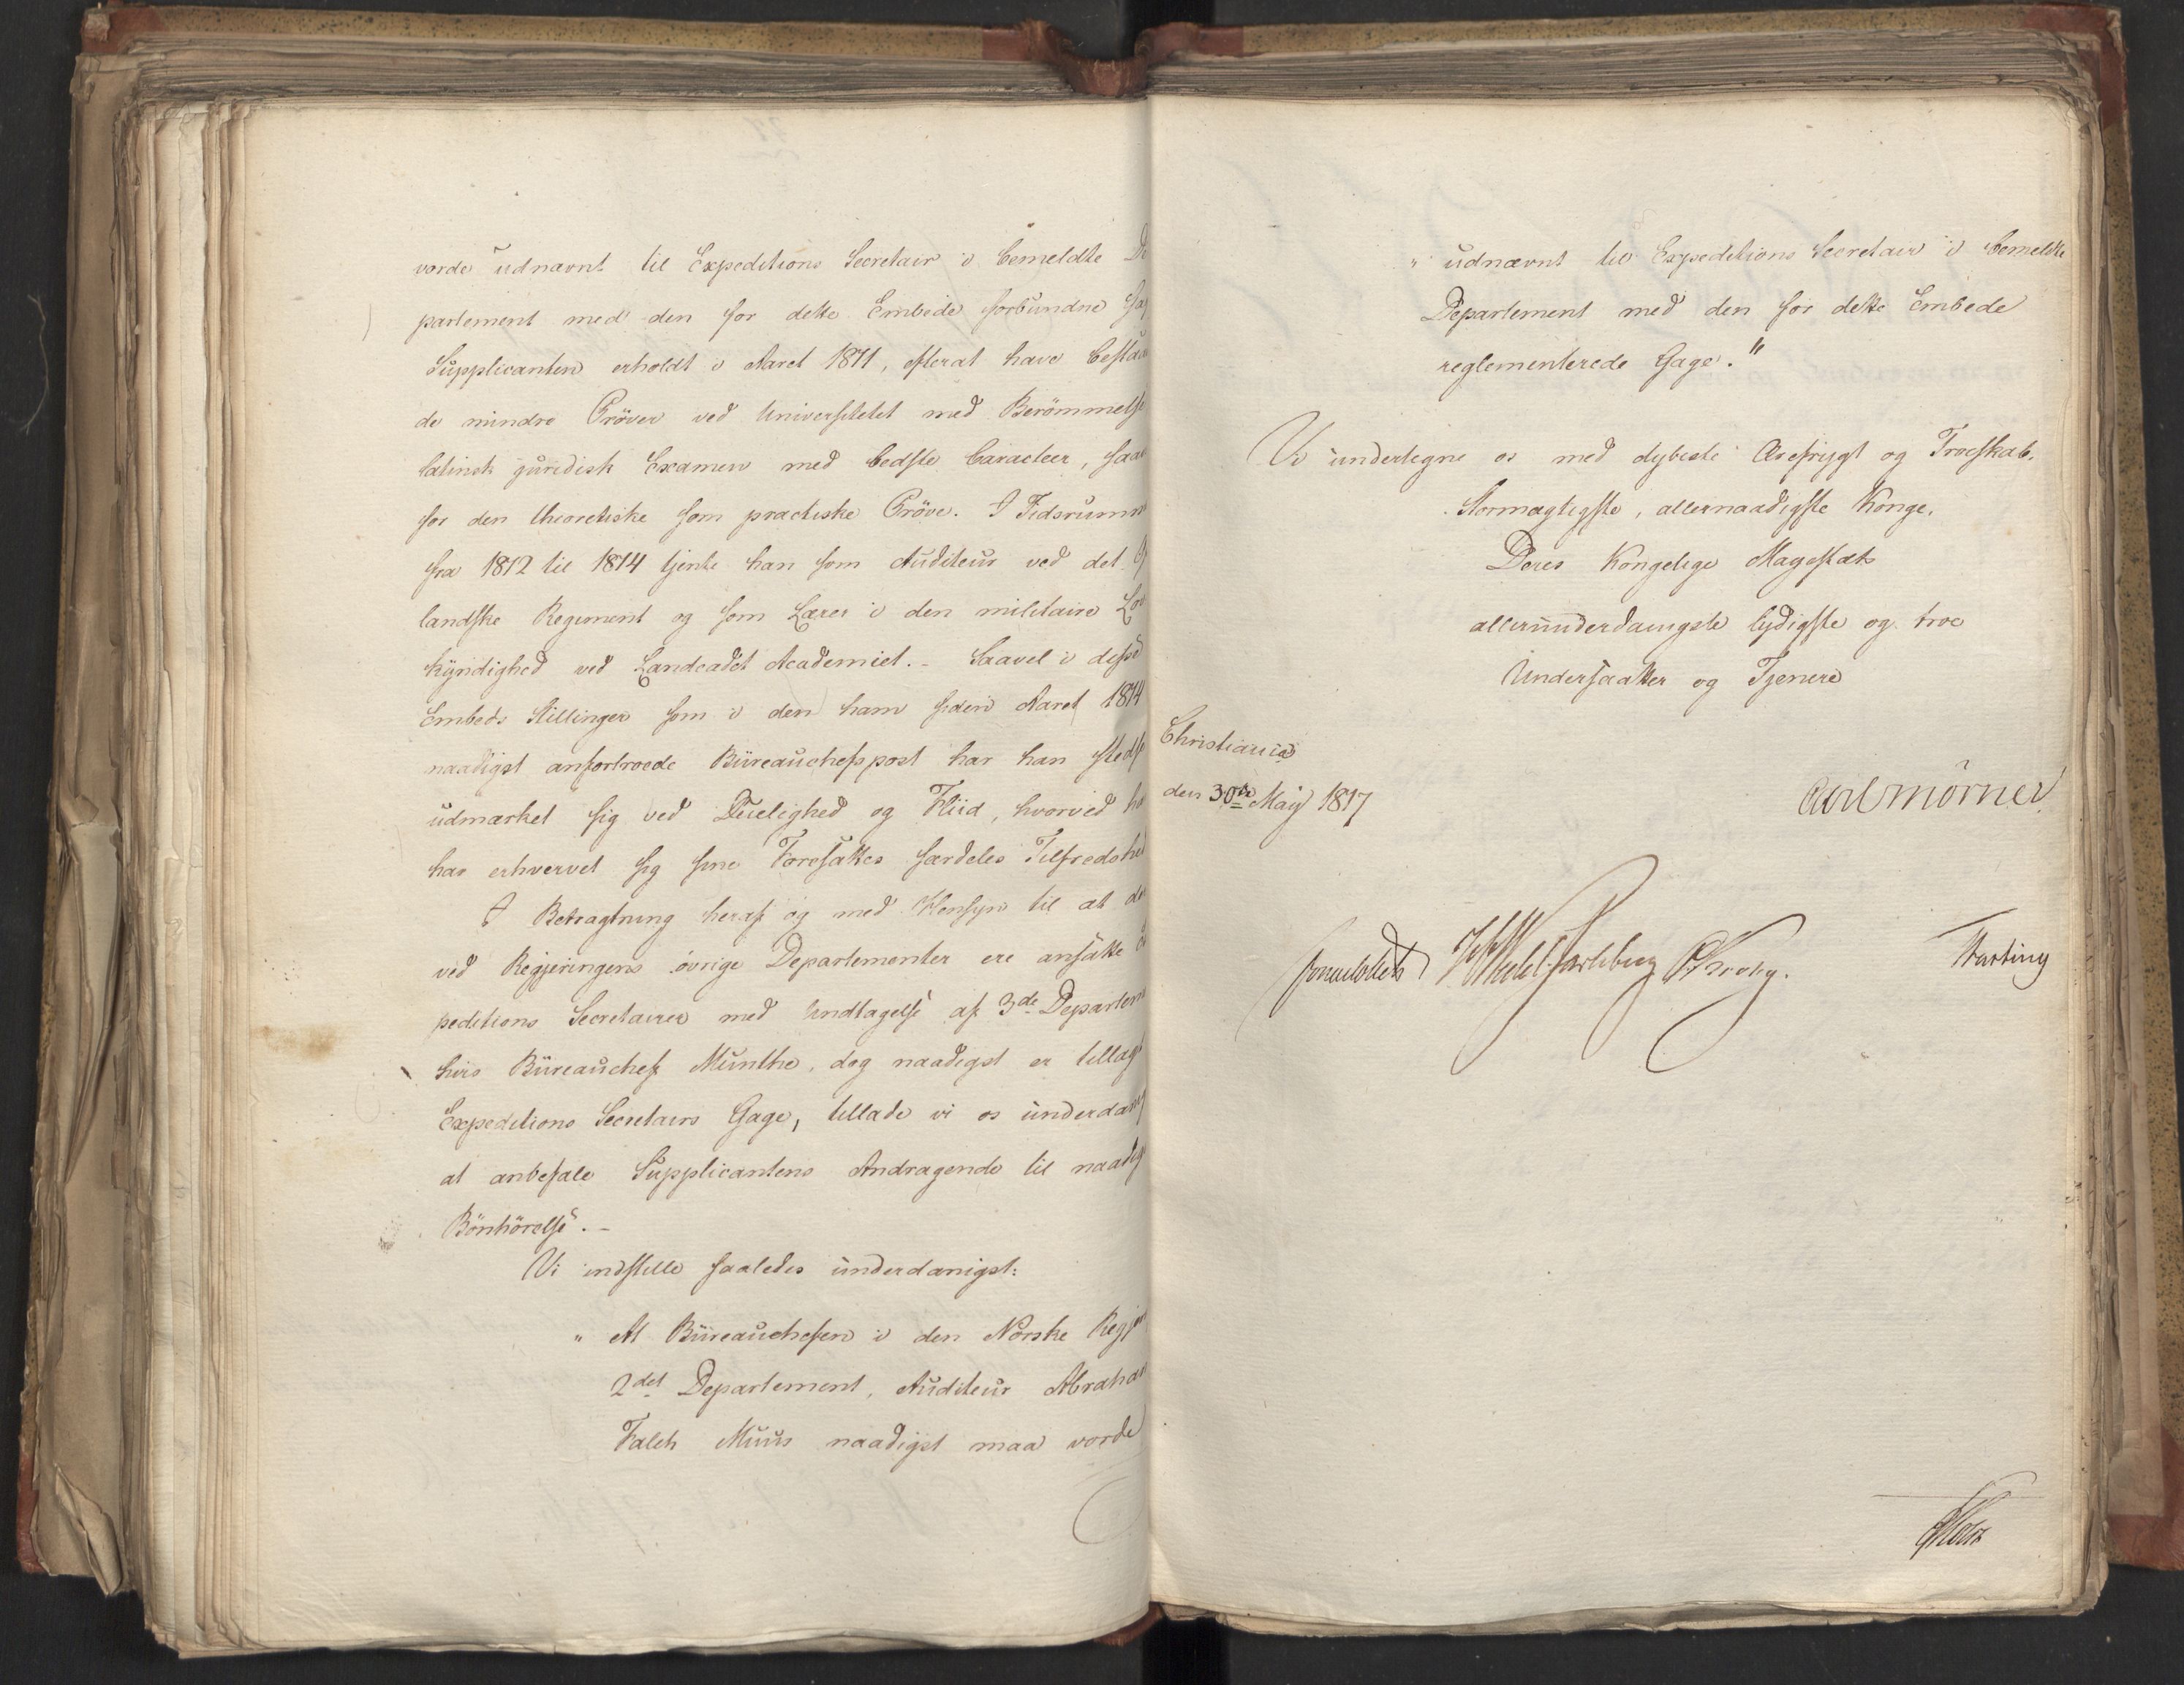 vorde udnævnt til Expeditions Secretair i bemeldte De
partement med den for dette Embede forbundne Gag
Supplicanten erholdt i Aaret 1811, efterat have bestaae
de mindre Pröver ved Universitetet med Berömmelse
latinsk juridisk Examen med bedste Caracteer, saav
for den theoretiske som practiske Pröve. I Tidsrumm
fra 1812 til 1814 tjente han som Auditeur ved det
landske Regiment og som Lærer i den militaire Lov
kyndighed ved Landcadet Academiet. - Saavel i disse
Embeds Stillinger som i den ham siden Aaret 1814
naadigst anfortroede Büreauchefspost har han stedse
udmærket sig ved Duelighed og Fliid, hvorved ha
har erhvervet sig sine Foresattes særdeles Tilfredshed
I Betragtning heraf og med Hensyn til at der
ved Regjeringens övrige Departementer ere ansatte Ex
peditions Secretairer med Undtagelse af 3de Departem
hvis Büreauchef Munthe, dog naadigst er tillagt
Expeditions Secretairs Gage, tillade vi os underdanig
at anbefale Supplicantens Andragende til naadig
Bönhörelse. -
Vi indstille saaledes underdanigst:
" At Büreauchefen i den Norske Regjer
2det Departement, Auditeur Abraham
Falch Muus naadigst maa vorde
" udnævnt til Expeditions Secretair i bemeldte
Departement med den for dette Embede
reglementerede Gage."
Vi undertegne os med dybeste Ærefrygt og Troeskab.
Stormægtigste, allernaadigste Konge,
Deres Kongelige Majestæts
allerunderdanigste lydigste og troe
Undersaatter og Tjenere
Christiania
den 30te May 1817
Carl Mörner
Sommerhielm HWedel-Jarlsberg Krohg.
Hasting